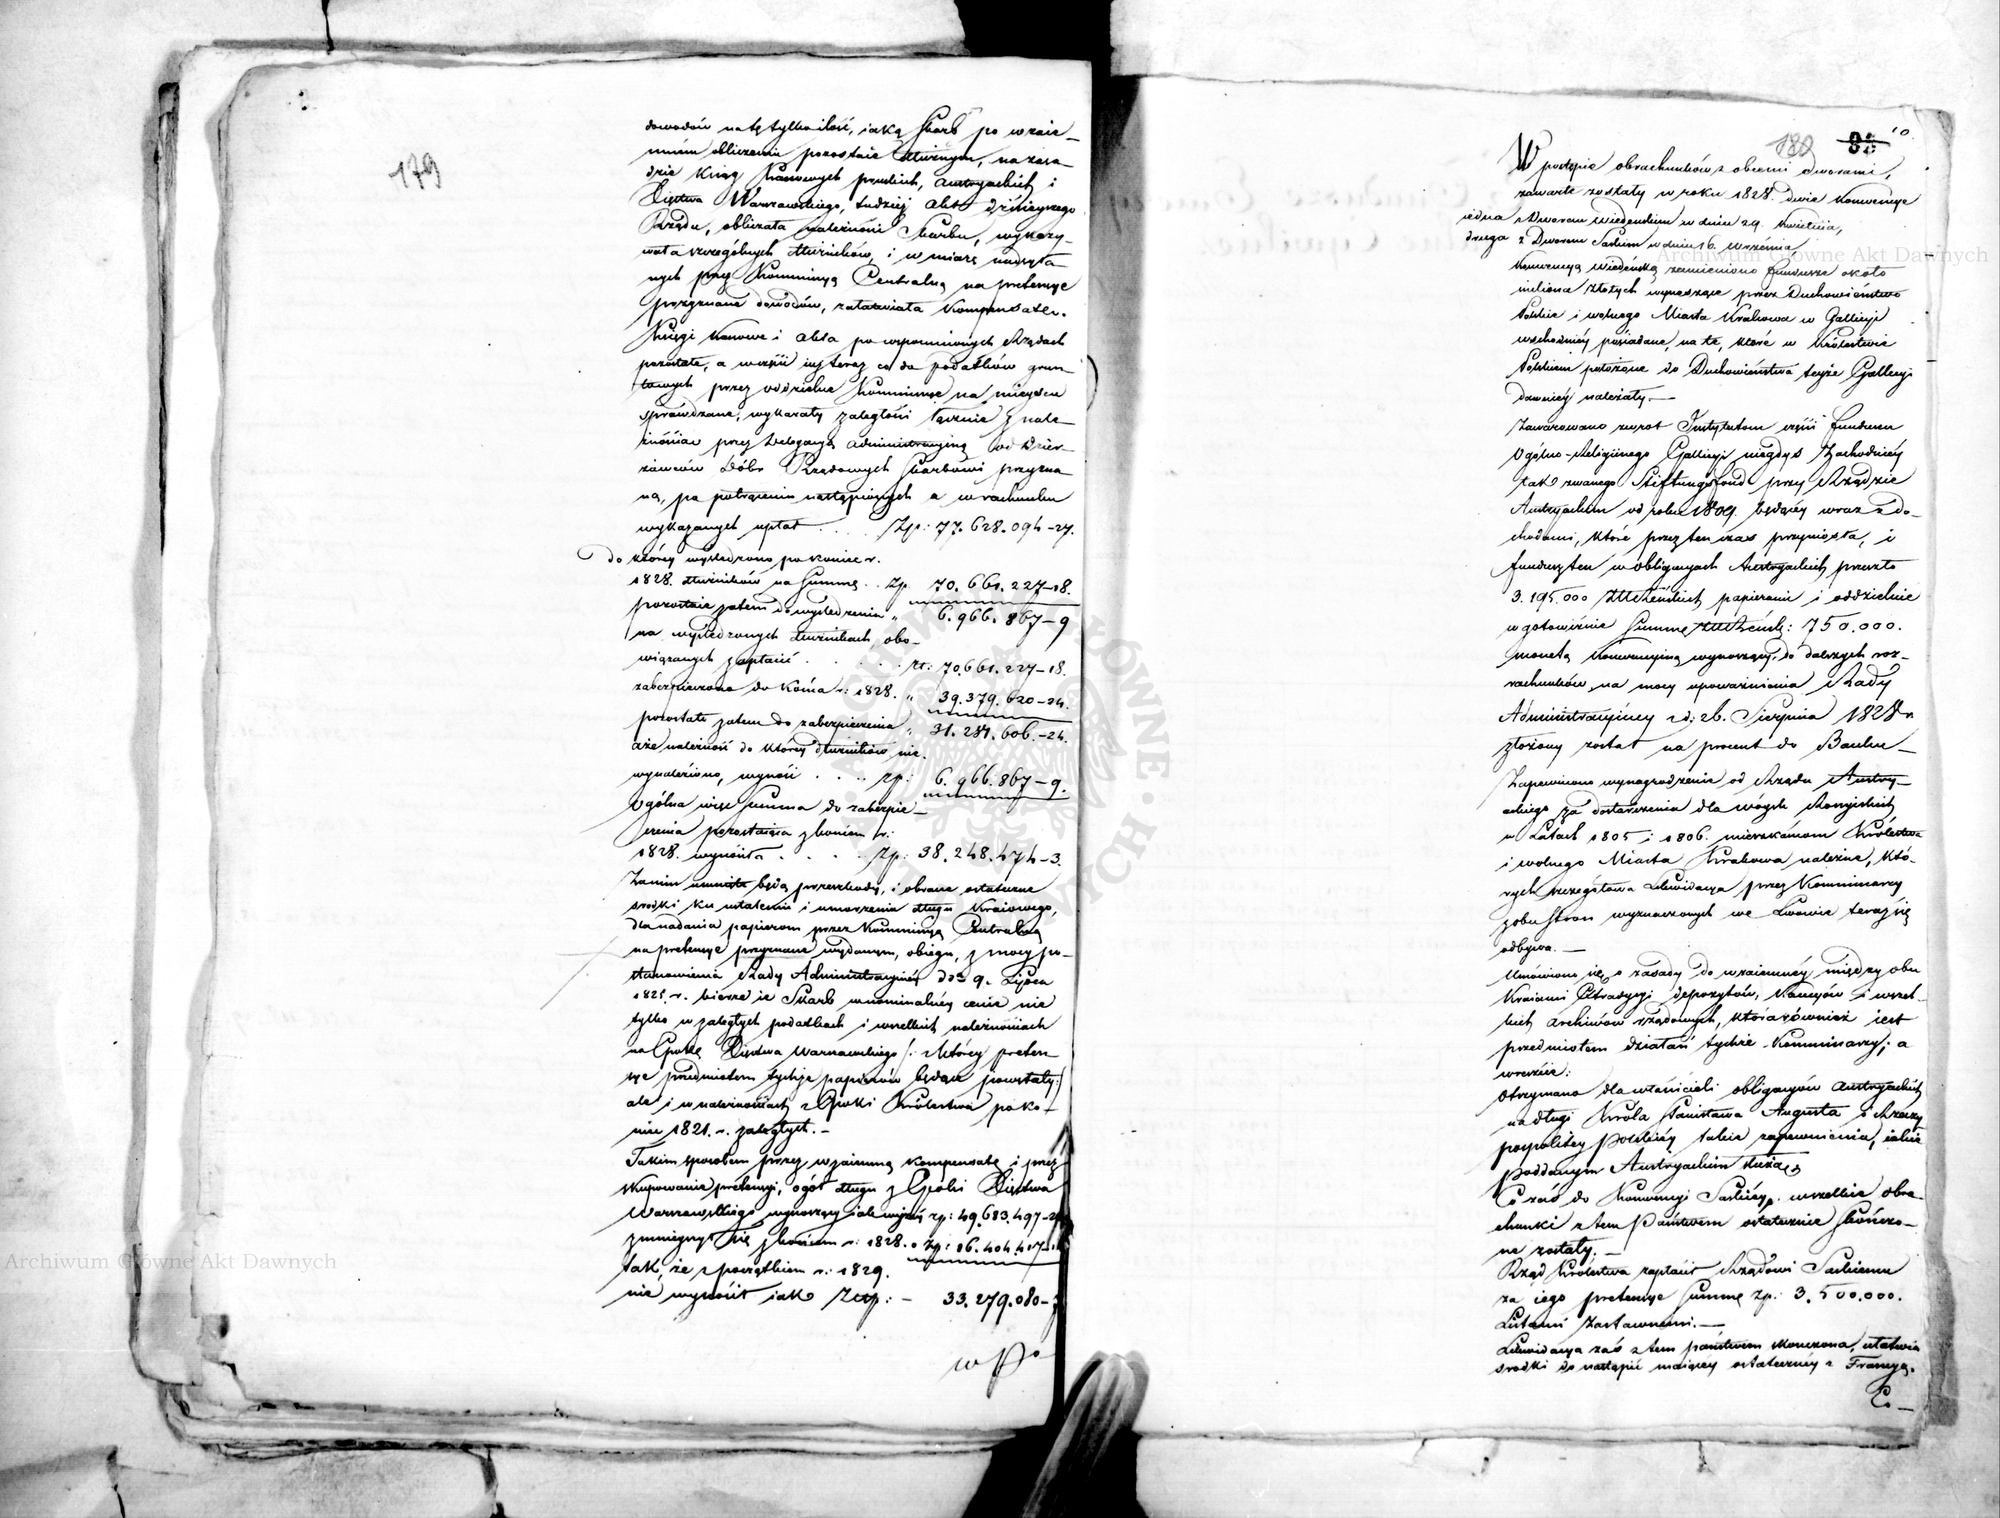 179
dowodów na tę tylko ilość, iaką Skarb po wzaie-
mném obliczeniu pozostaie dłużnym, na zasa-
dzie Ksiąg Kassowych pruskich, austryackich i
Xięstwa Warszawskiego, tudzież akt dzisieyszego
Rządu, obliczała należności Skarbu, wykazy-
wała szczególnych dłużników, i w miarę nadsyła-
nych przez Kommissyą Centralną na pretensye
przyznane dowodów, załatwiała Kompensaten.
Księgi kassowe i akta po wspomnionych Rządach
pozostałe, a w części iuż teraz co do podatków grun-
towych przez oddzielne Kommissye na mieyscu
sprawdzane, wykazały zaległości łącznie z nale-
żnościac przez Delegacyą administracyiną od Dzier-
żawców Dóbr Rządowych Skarbowi przyzna-
ną, po potrąceniu następionych a w rachunku
wykazanych upłat . . . Złp: 77.628.094-27.
do któréy wyśledzono po koniec r.
1828. dłużników na Summę . . zp. 70.661.227-18.
pozostaie zatem do wyśledzenia „ 6.966.867-9
na wyśledzonych dłużnikach, obo-
wiązanych zapłacić . . . . . zł: 70.661.227-18.
zabezpieczono do końca r: 1828. „ 39.379.620-24.
pozostało zatem do zabezpieczenia „ 31.281.606.-24.
a że należność do któréy dłużników nie
wynaleziono, wynosi . . . zp: 6.966.867-9.
Ogólna więc Summa do zabezpie-
czenia pozostaiąca z końcem r:
1828. wynosiła . . . . zp: 38.248.474-3.
Zanim usunięte będą przeszkody, i obrane ostateczne
srodki ku ustaleniu i umorzeniu długu Kraiowego,
dla nadania papierom przez Kommissyą Centralną
na pretensye przyznane wydanym, obiegu, z mocy po-
stanowienia Rady Administracyinéy ddo 9. Lipca
1821. r. bierze ie Skarb w nominalnéy cenie nie
tylko w zaległych podatkach i wszelkich należnościach
na Epokę Xięstwa Warszawskiego /: z któréy preten-
sye przedmiotem tychże papierów będące powstały:/
ale i w należnościach z Epoki Królestwa po ko-
niec 1821. r. zaległych. -
Takim sposobem przez wzaiemną kompensatę i przez
skupowanie pretensyi, ogół długu z Epoki Xięstwa
Warszawskiego, wynoszący iak wyżéy zp: 49.683.497-
zmnieyszył się z końcem r: 1828. o zp: 16.404.417-
tak, że z początkiem r: 1829.
nie wynosił iak Złp: - 33.279.080-
w Po
180
10.
W postępie obrachunków z obcemi dworami,
zawarte zostały w roku 1828. dwie Konwencye
iedna z Dworem Wiedeńskim w dniu 29. Kwietnia,
druga z Dworem Saskim w dniu 16. Września
Konwencyą Wiedeńską zamieniono fundusze około
miliona Złotych wynoszące przez Duchowieństwo
Polskie i wolnego Miasta Krakowa w Gallicyi
wschodniéy posiadane, na te, które w Królestwie
Polskiem położone do Duchowieństwa teyże Gallicyi
dawniéy należały. -
Zawarowano zwrot Instytutom części funduszu
Ogólno-Religiinego Gallicyi niegdyś Zachodniéy
tak zwanego Stiftungsfond przy Rządzie
Austryackim od roku 1809. będącéy wraz z do-
chodami, które przez ten czas przyniosła, i
fundusz ten w obligacyach Austryackich przeszło
3.195.000 Złł Reńskich papierami i oddzielnie
w gotowiźnie Summę Złł Reńsk: 750.000.
monetą konwencyiną wynoszący, do dalszych roz-
rachunków, na mocy upoważnienia Rady
Administracyinéy z d: 26. Sierpnia 1828 r.
złożony został na procent do Banku -
Zapewniono wynagrodzenie od Rządu Austry-
ackiego za dostarczenia dla woysk Rossyiskich
w Latach 1805 i 1806. mieszkańcom Królestwa
i wolnego Miasta Krakowa należne, któ-
rych szczegółowa Likwidacya przez Kommissarzy
z obu Stron wyznaczonych we Lwowie teraz się
odbywa. -
Umówiono się o zasady do wzaiemnéy między obu
Kraiami Extradycyi depozytów, kaucyów i wszel-
kich archiwów rządowych, która również iest
przedmiotem działań tychże Kommissarzy; a
wreszcie:
Otrzymano dla właścicieli obligacyów austryackich
na długi Króla Stanisława Augusta i Rzeczy
pospolitéy Polskiéy takie zapewnienia, iakie
poddanym Austryackim służą.
Co zaś do Konwencyi Saskiéy, wszelkie obra-
chunki z tem Państwem ostatecznie skończo-
ne zostały. -
Rząd Królestwa zapłacił Rządowi Saskiemu
za iego pretensye Summę zp. 3.500.000.
Listami Zastawnemi. -
Likwidacya zaś z tem państwem skończona, ułatwia
srodki do nastąpić maiącéy ostatecznéy z Francyą.
Co -
Archiwum Główne Akt Dawnych
Archiwum Główne Akt Dawnych